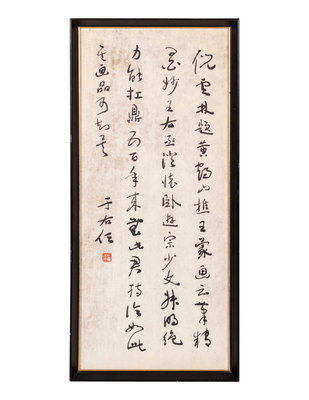 倪雲林題黃鶴山樵王蒙画云筆精
墨妙王右丞澄懷臥遊宗少文叔明絕
力能扛鼎五百年來無此君持論如此
其画品可知矣
于右任